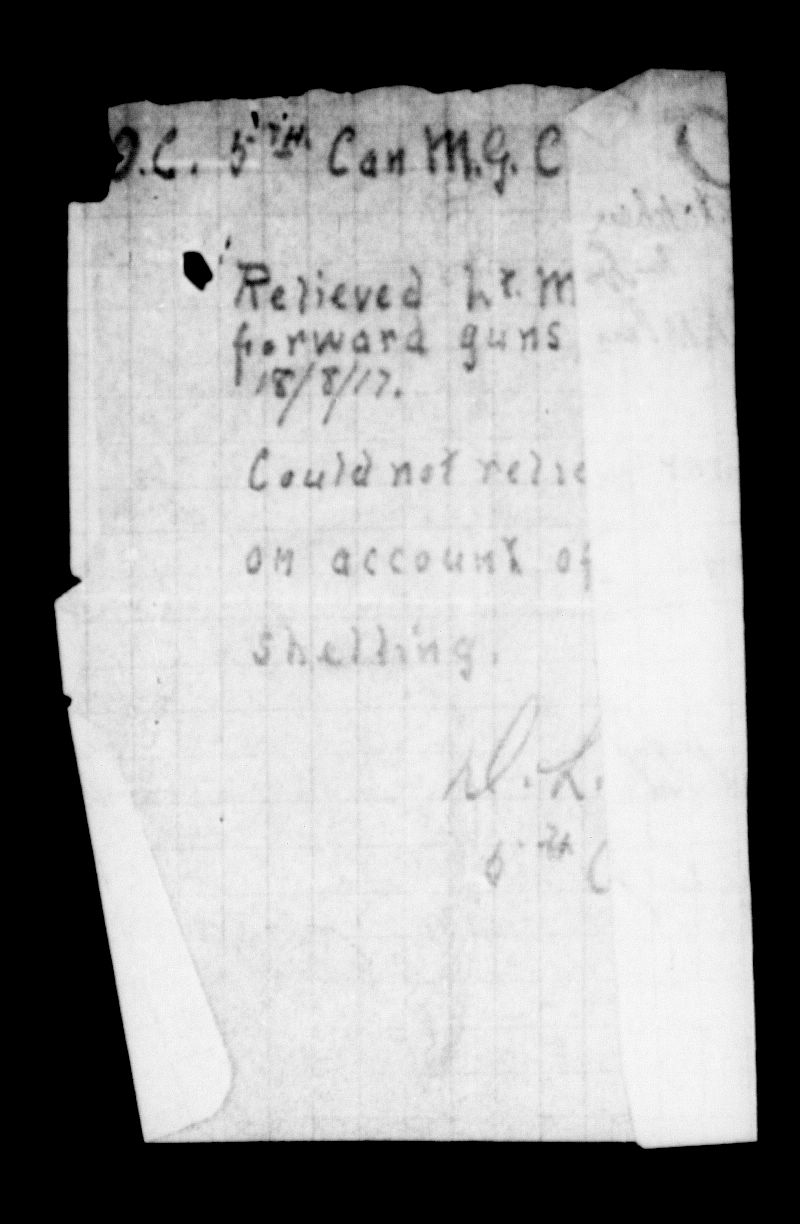 O.C. 5TH Can M.G. C
Relieved Lt. M
forward guns
18/8/17.
Could not relie
on account of
shelling.
D. L.
5th C